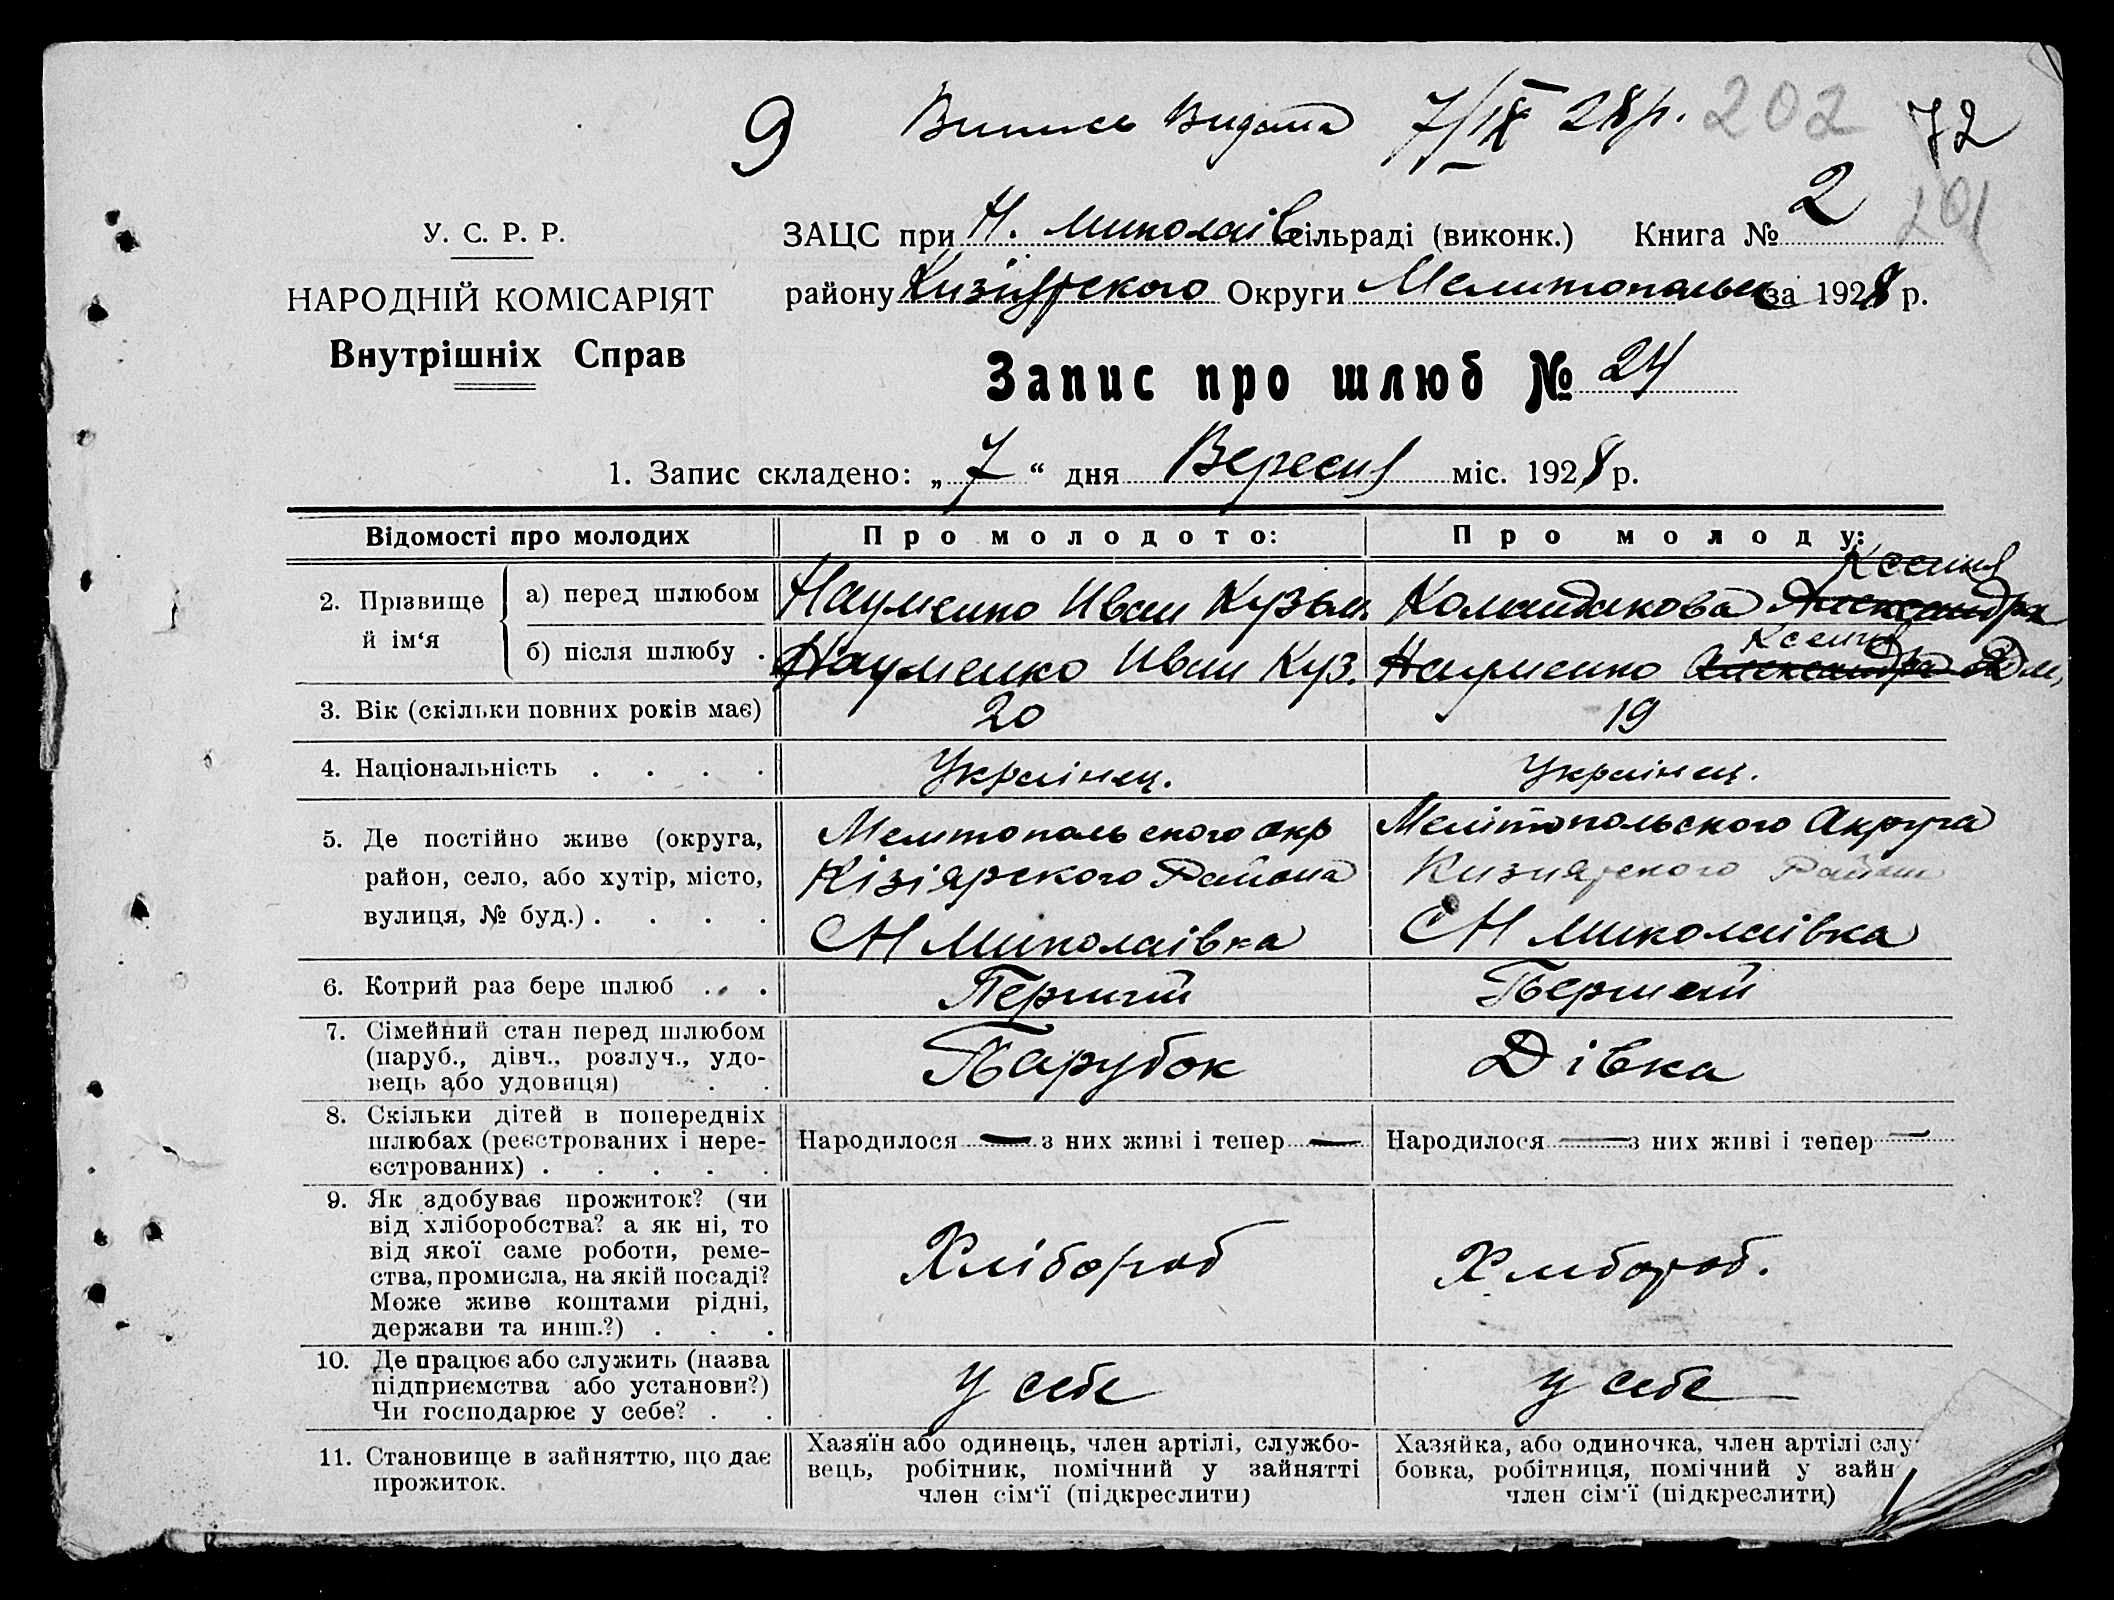 9 Випись Видата 7/IX 28 р. 202 72
201
У. С. Р. Р.
НАРОДНІЙ КОМІСАРІЯТ
Внутрішніх Справ
ЗАЦС при Н. Миколаїв сільраді (виконк.) Книга № 2
району Кизіярского Округи Мелитопольск за 1928 р.
Запис про шлюб № 24
1. Запис складено: „ 7 “ дня Вересня міс. 1928 р.
Відомості про молодих
Про молодого:
Про молоду:
2. Прізвище й ім‘я
а) перед шлюбом
Науменко Иван Кузьм
Ксения
Коландакова Александра
б) після шлюбу .
Науменко Иван Куз.
Ксения
Науменко Александра Дм.
3. Вік (скільки повних років має)
20
19
4. Національність . . . .
Українец.
Українец.
5. Де постійно живе (округа,
район, село, або хутір, місто,
вулиця, № буд.) . . . .
Мелитопольского окр
Кізіярского Района
С Н Миколаівка
Мелітопольского Округа
Кизиярского Района
С Н Миколаівка
6. Котрий раз бере шлюб . . .
Перший
Перший
7. Сімейний стан перед шлюбом
(паруб., дівч., розлуч., удо-
вець або удовиця) . .
Парубок
Дівка
8. Скільки дітей в попередніх
шлюбах (реєстрованих і нере-
єстрованих) . . . . .
Народилося — з них живі і тепер —
Народилося — з них живі і тепер —
9. Як здобуває прожиток? (чи
від хліборобства? а як ні, то
від якої саме роботи, реме-
ства, промисла, на якій посаді?
Може живе коштами рідні,
держави та инш.?) . . .
Хлібороб
Хлибороб.
10. Де працює або служить (назва
підприємства або установи?)
Чи господарює у себе? . .
У себе
У себе
11. Становище в зайняттю, що дає
прожиток.
Хазяїн або одинець, член артілі, службо-
вець, робітник, помічний у зайнятті
член сім‘ї (підкреслити)
Хазяйка, або одиночка, член артілі слу
бовка, робітниця, помічний у зайн
член сім‘ї (підкреслити)